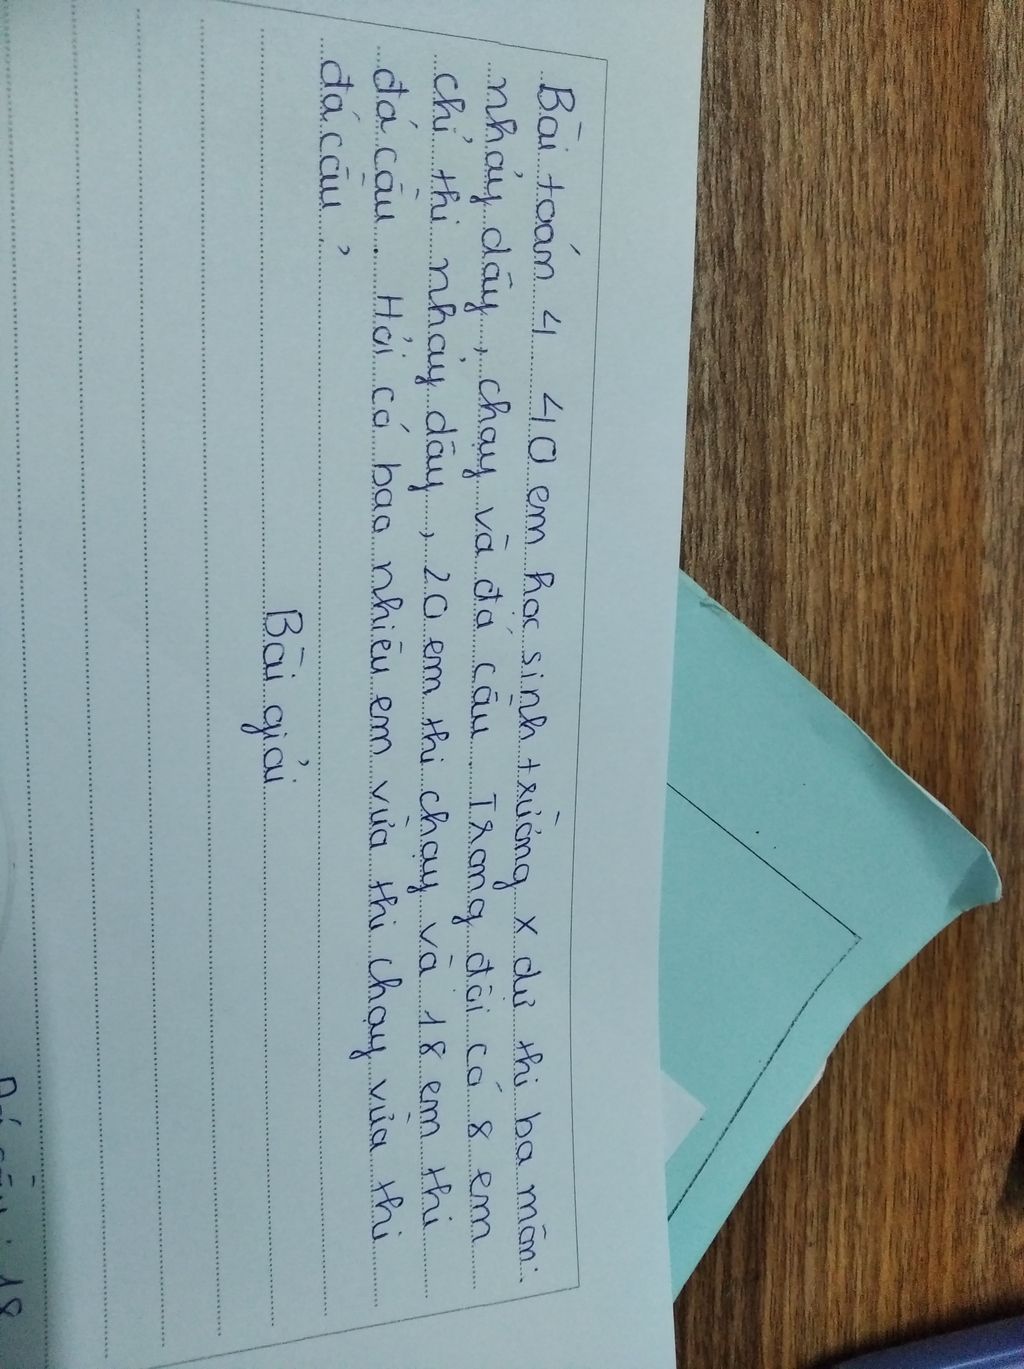 Bài toán 4 40 em học sinh trường X dự thi ba môn:
nhảy dây, chạy và đá cầu. Trong đội có 8 em
chỉ thi nhảy dây, 20 em thi chạy và 18 em thi
đá cầu. Hỏi có bao nhiêu em vừa thi chạy vừa thi
đá cầu?
Bài giải
18